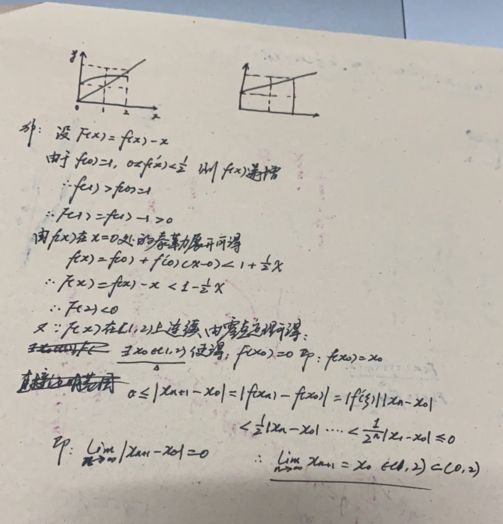 y
0 1 2 x
解: 设 F(x)=f(x)-x
由于 f(0)=1, 0<f'(x)<1/2 则 f(x)递增
∴ f(1)>f(0)=1
∴ F(1)=f(1)-1>0
由f(x)在x=0处的泰勒展开可得
f(x)=f(0)+f'(0)(x-0)<1+1/2x
∴ F(x)=f(x)-x<1-1/2x
∴ F(2)<0
又∵ F(x)在(1,2)上连续,由零点定理可得:
∃x₀∈(1,2) 使得, F(x₀)=0 即: f(x₀)=x₀
0≤|xₙ₊₁-x₀|=|f(xₙ)-f(x₀)|=|f'(ξ)||xₙ-x₀|
<1/2|xₙ-x₀|……<1/2ⁿ|x₁-x₀|≤0
即: lim n→∞ |xₙ₊₁-x₀|=0 ∴ lim n→∞ xₙ₊₁=x₀∈(1,2)⊂(0,2)